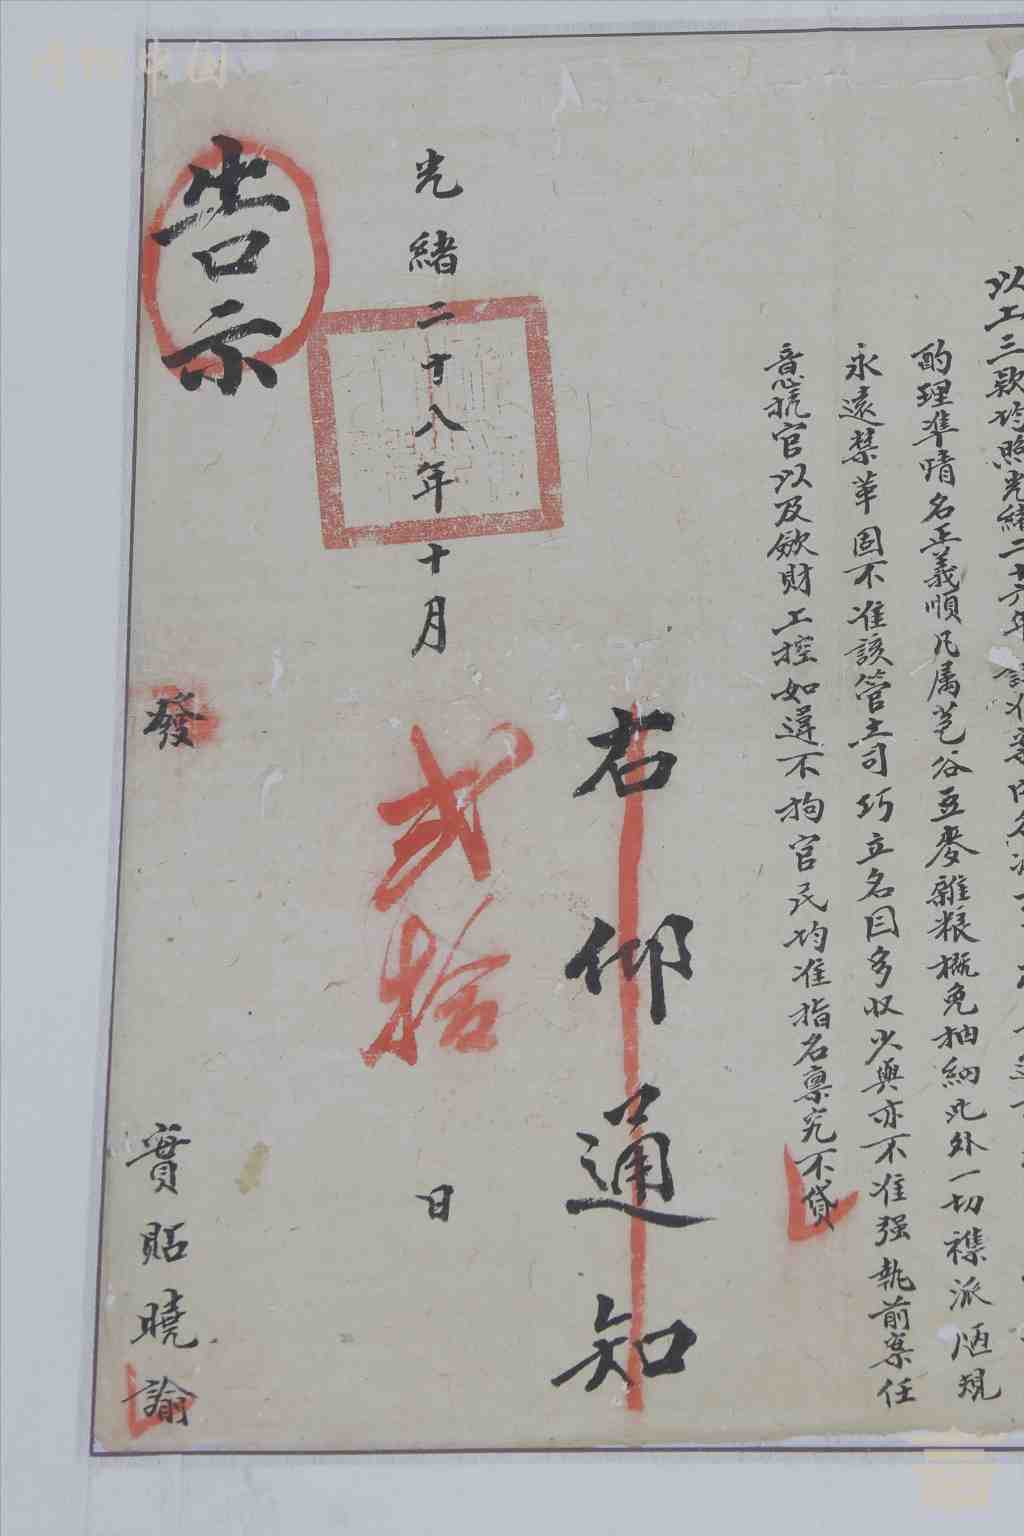 以上三款均照光緒二十六年
酌理準情名正義順凡属芑谷豆麥雜粮概免抽納此外一切襍派陋規
永遠禁革固不准該管土司巧立名目多収少與亦不准强執前案任
意抗官以及歛財工控如違不拘官民均准指名禀究不貸
右仰通知
光緒二十八年十月弍拾日
告示
發實貼曉諭